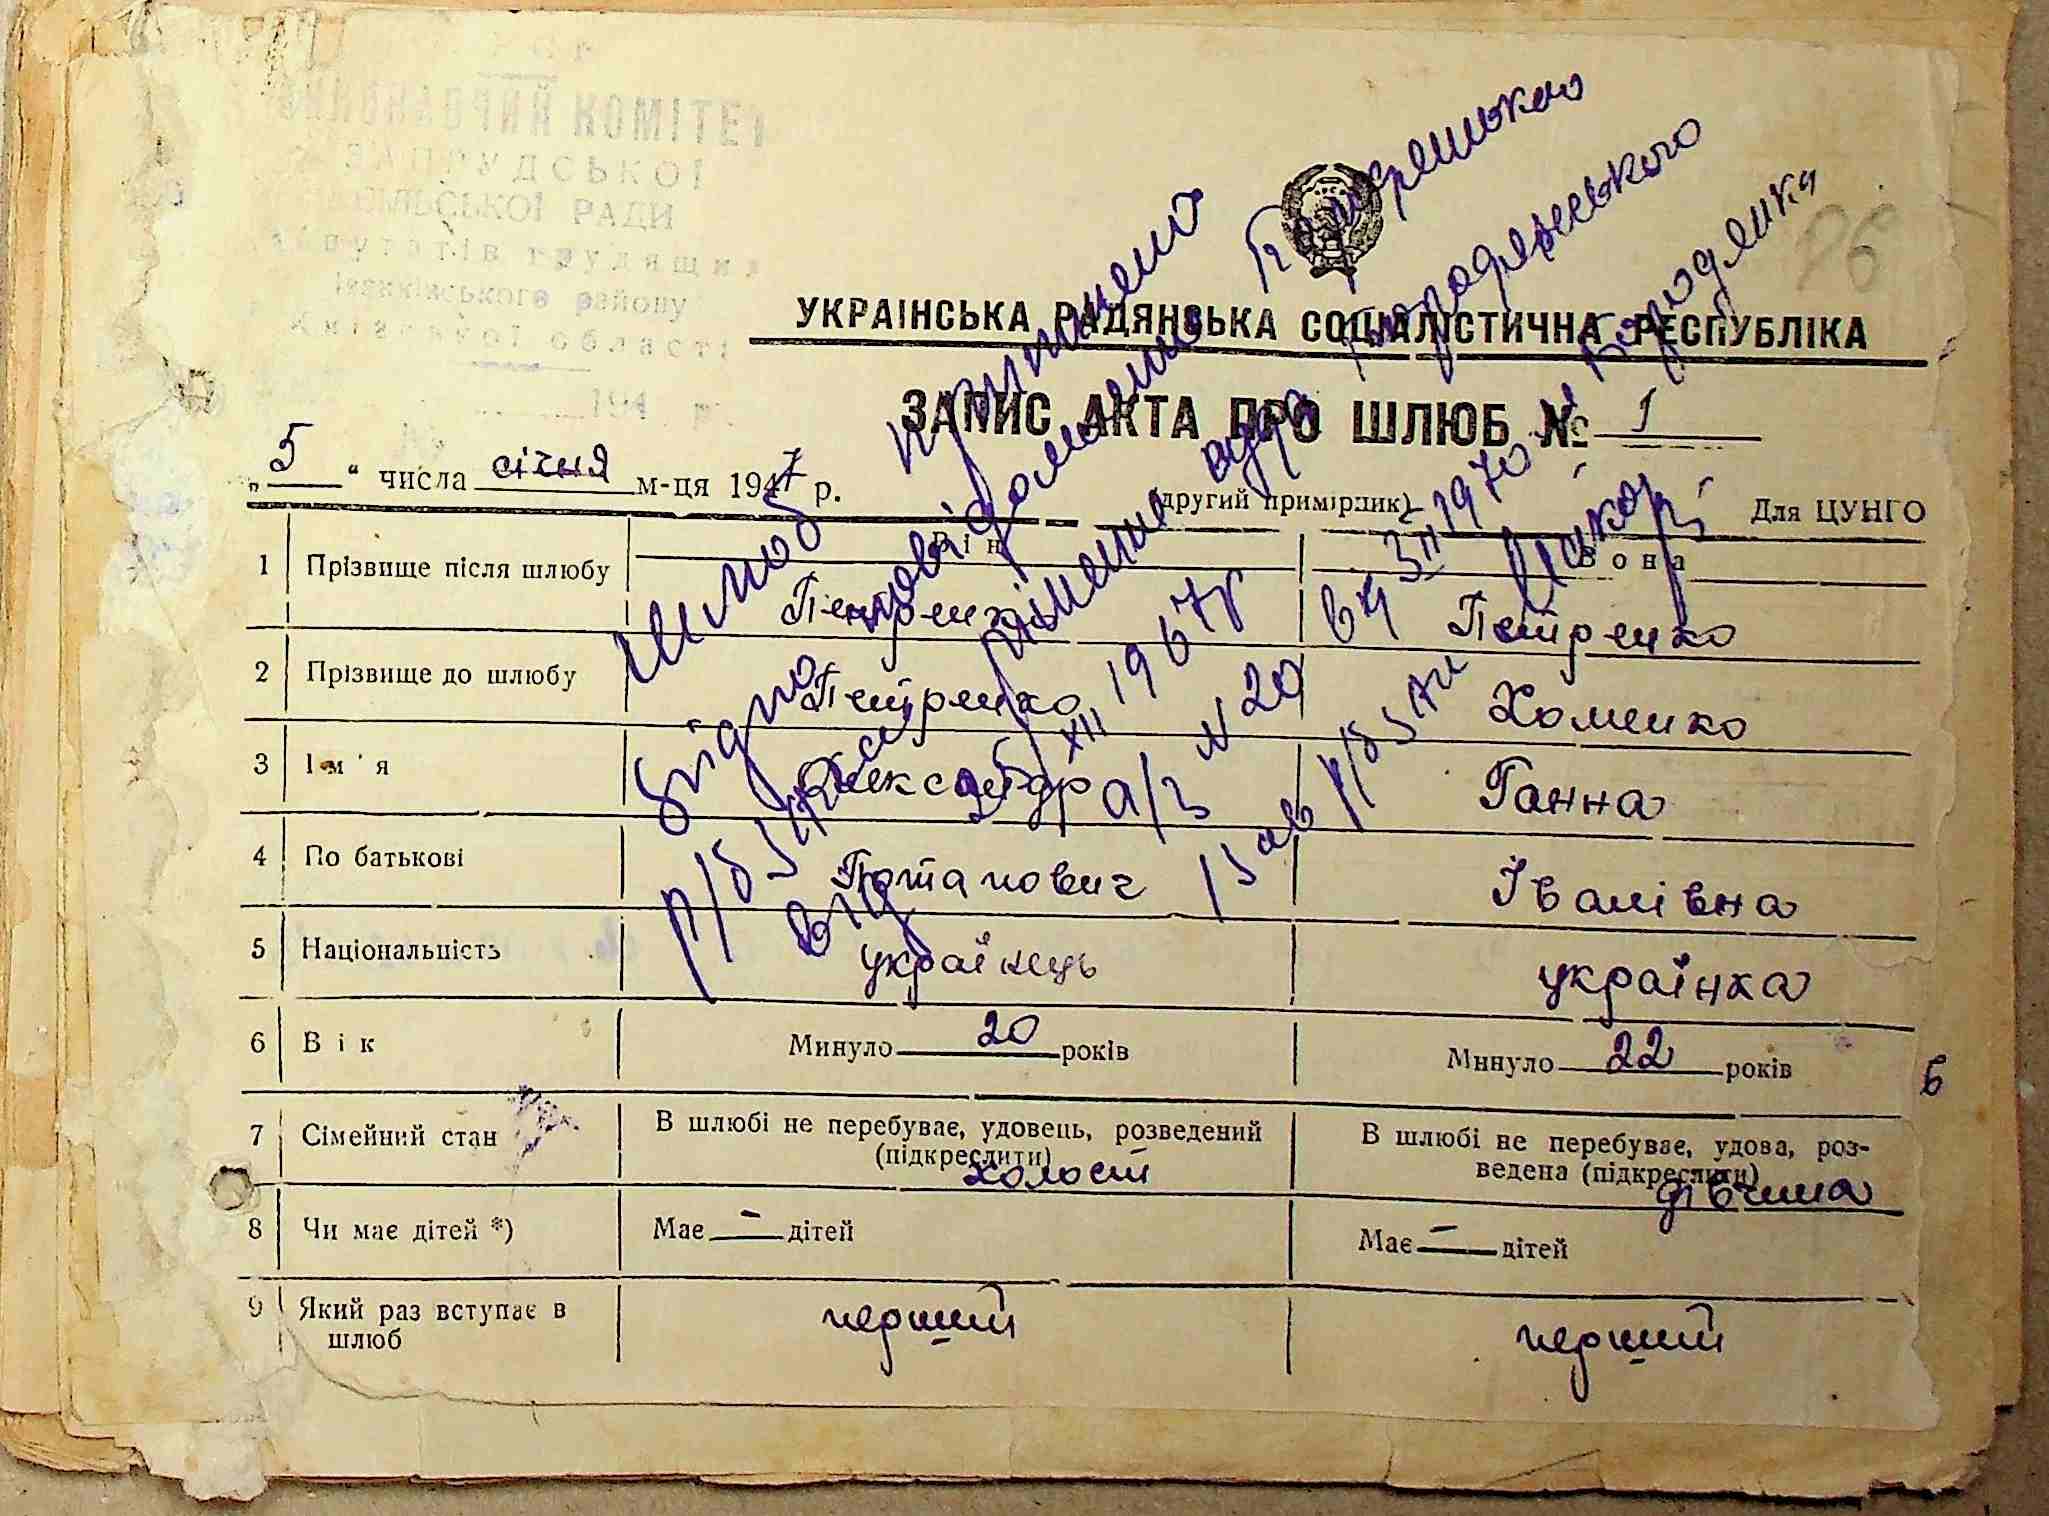 ВИКОНАВЧИЙ КОМІТЕТ
ЗАПРУДСЬКОЇ
СІЛЬСЬКОЇ РАДИ
депутатів трудящих
Іванківського району
Київської області
194 р.
26
УКРАЇНСЬКА РАДЯНСЬКА СОЦІАЛІСТИЧНА РЕСПУБЛІКА
ЗАПИС АКТА ПРО ШЛЮБ № 1
„ 5 “ числа січня м-ця 1947 р.
(другий примірник)
Для ЦУНГО
Він
Вона
1 Прізвище після шлюбу Петренко Петренко
2 Прізвище до шлюбу Петренко Хоменко
3 Ім'я Олександр Ганна
4 По батькові Потапович Іванівна
5 Національність українець українка
6 Вік Минуло 20 років Минуло 22 років
6
7 Сімейний стан В шлюбі не перебуває, удовець, розведений (підкреслити) холост В шлюбі не перебуває, удова, розведена (підкреслити) дівчина
8 Чи має дітей *) Має — дітей Має — дітей
9 Який раз вступає в шлюб перший перший
Шлюб припинено
згідно повідомлення
рішення нарсуду Бородянського
від XII 1967р а/з № 20